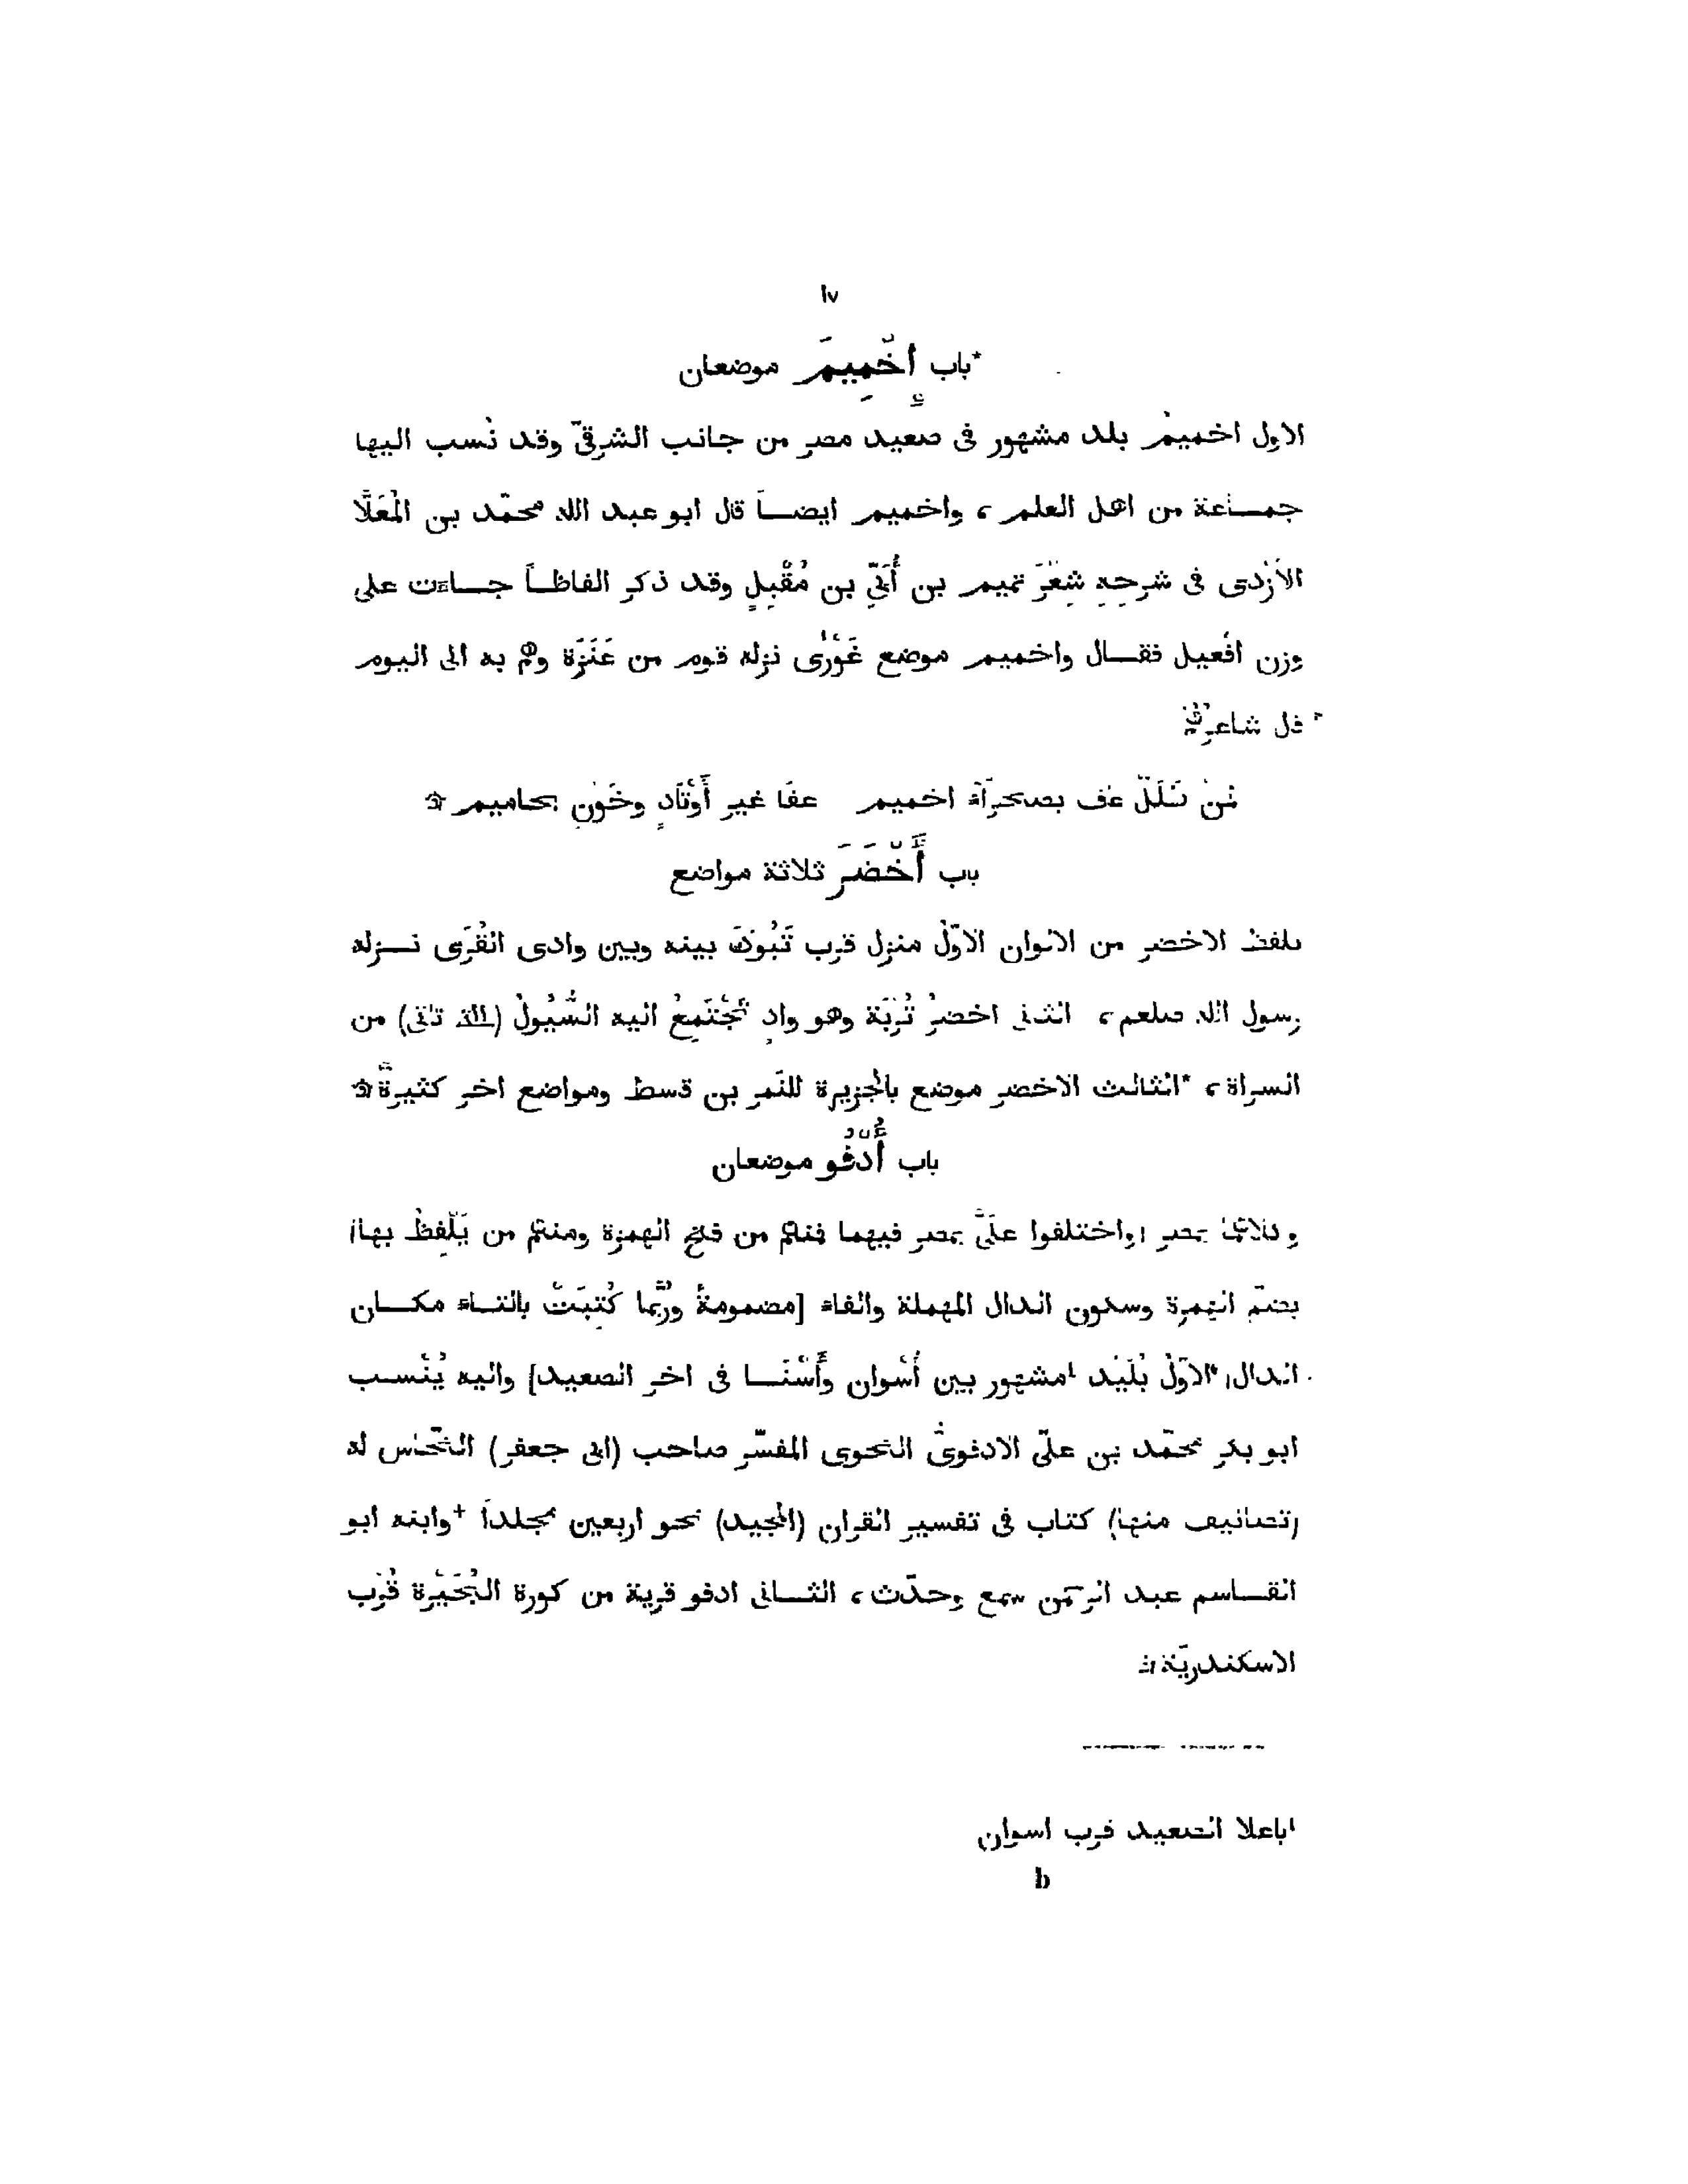 ١٧
*باب إِخْمِيمَ موضعان
الاول اخميمُ بلد مشهور فى صعيد مصر من جانب الشرقىّ وقد نُسب اليها
جمـاعة من اهل العلم، واخميم ايضـاً قال ابو عبد الله محمّد بن المُعَلَّا
الأَزْدى فى شرحِهِ شِعْرَ تميم بن أُبَىِّ بن مُقْبِلٍ وقد ذكر الفاظـاً جـاءت على
وزن افْعيل فقـال واخميم موضع غَوْرِىٌّ نزله قوم من عَنَزَة وهم به الى اليوم
*قال شاعرهُمْ
لمن طَلَلٌ عافٍ بصحرآء اخميم عفَا غير أَوْتَادٍ وجُونٍ يحاميم ۞
باب أَخْضَرَ ثلاثة مواضع
بلفظ الاخضر من الالوان الاوّلُ منزل قرب تَبُوكَ بينه وبين وادى القُرَى نـزله
رسول الله صلعم، الثانى اخضرُ تُرَبَة وهو وادٍ تَجْتَمِعُ اليه السُّيُولُ (الله تأتى) من
السراة، *الثالث الاخضر موضع بالجزيرة للنَمر بن قسط ومواضع اخر كثيرةٌ۞
باب أُدْفُو موضعان
وكلاهما بمصر واختلفوا علىَّ بمصر فيهما فمنهم من فتح الهمزة ومنهم من يَلْفِظُ بها
بضمّ الهمزة وسكون الدال المهملة والفاء [مضمومةٌ ورُبَّما كُتِبَتْ بالتـاء مكـان
الدال، *الاوّلُ بُلَيْد ¹مشهور بين أُسْوان وأَسْنَـا فى اخر الصعيد] واليه يُنْسـب
ابو بكر محمّد بن علىّ الادفوىُّ النحوى المفسّر صاحب (ابى جعفر) النحّاس له
(تصانيف منها) كتاب فى تفسير القران (المجيد) نحو اربعين مجلداً +وابنه ابو
القـاسم عبد الرحمن سمع وحدّث، الثـانى ادفو قرية من كورة البُحَيْرة قُرْب
الاسكندريّة۞
¹باعلا الصعيد قرب اسوان
b